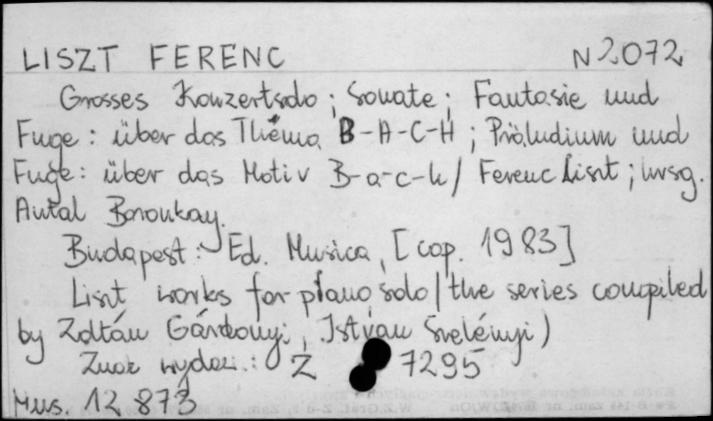 LISZT FERENC N 2072
Grosses Konzertsolo ; Sonate ; Fantasie und
Fuge : über das Thema B-A-C-H ; Präludium und
Fuge : über das Motiv B-a-c-h / Ferenc Liszt ; hrsg.
Antal Boronkay.
Budapest : Ed. Musica, [cop. 1983]
Liszt works for piano solo / the series compiled
by Zoltán Gárdonyi, István Szelényi)
Znak wydaw. : Z 7295
Mus. 12 873